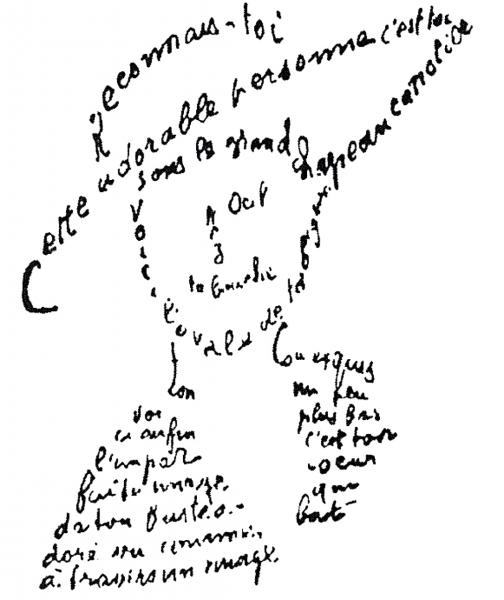 Reconnais-toi
Cette adorable personne c'est toi
sous le grand chapeau canotier
Oeil
Nez
la bouche
Voici l'ovale de ta figure
Ton
Cou exquis
Voi
ci enfin
l'impar
faite image
de ton buste a-
doré vu comme
à travers un nuage
un peu
plus bas
c'est ton
coeur
qui
bat